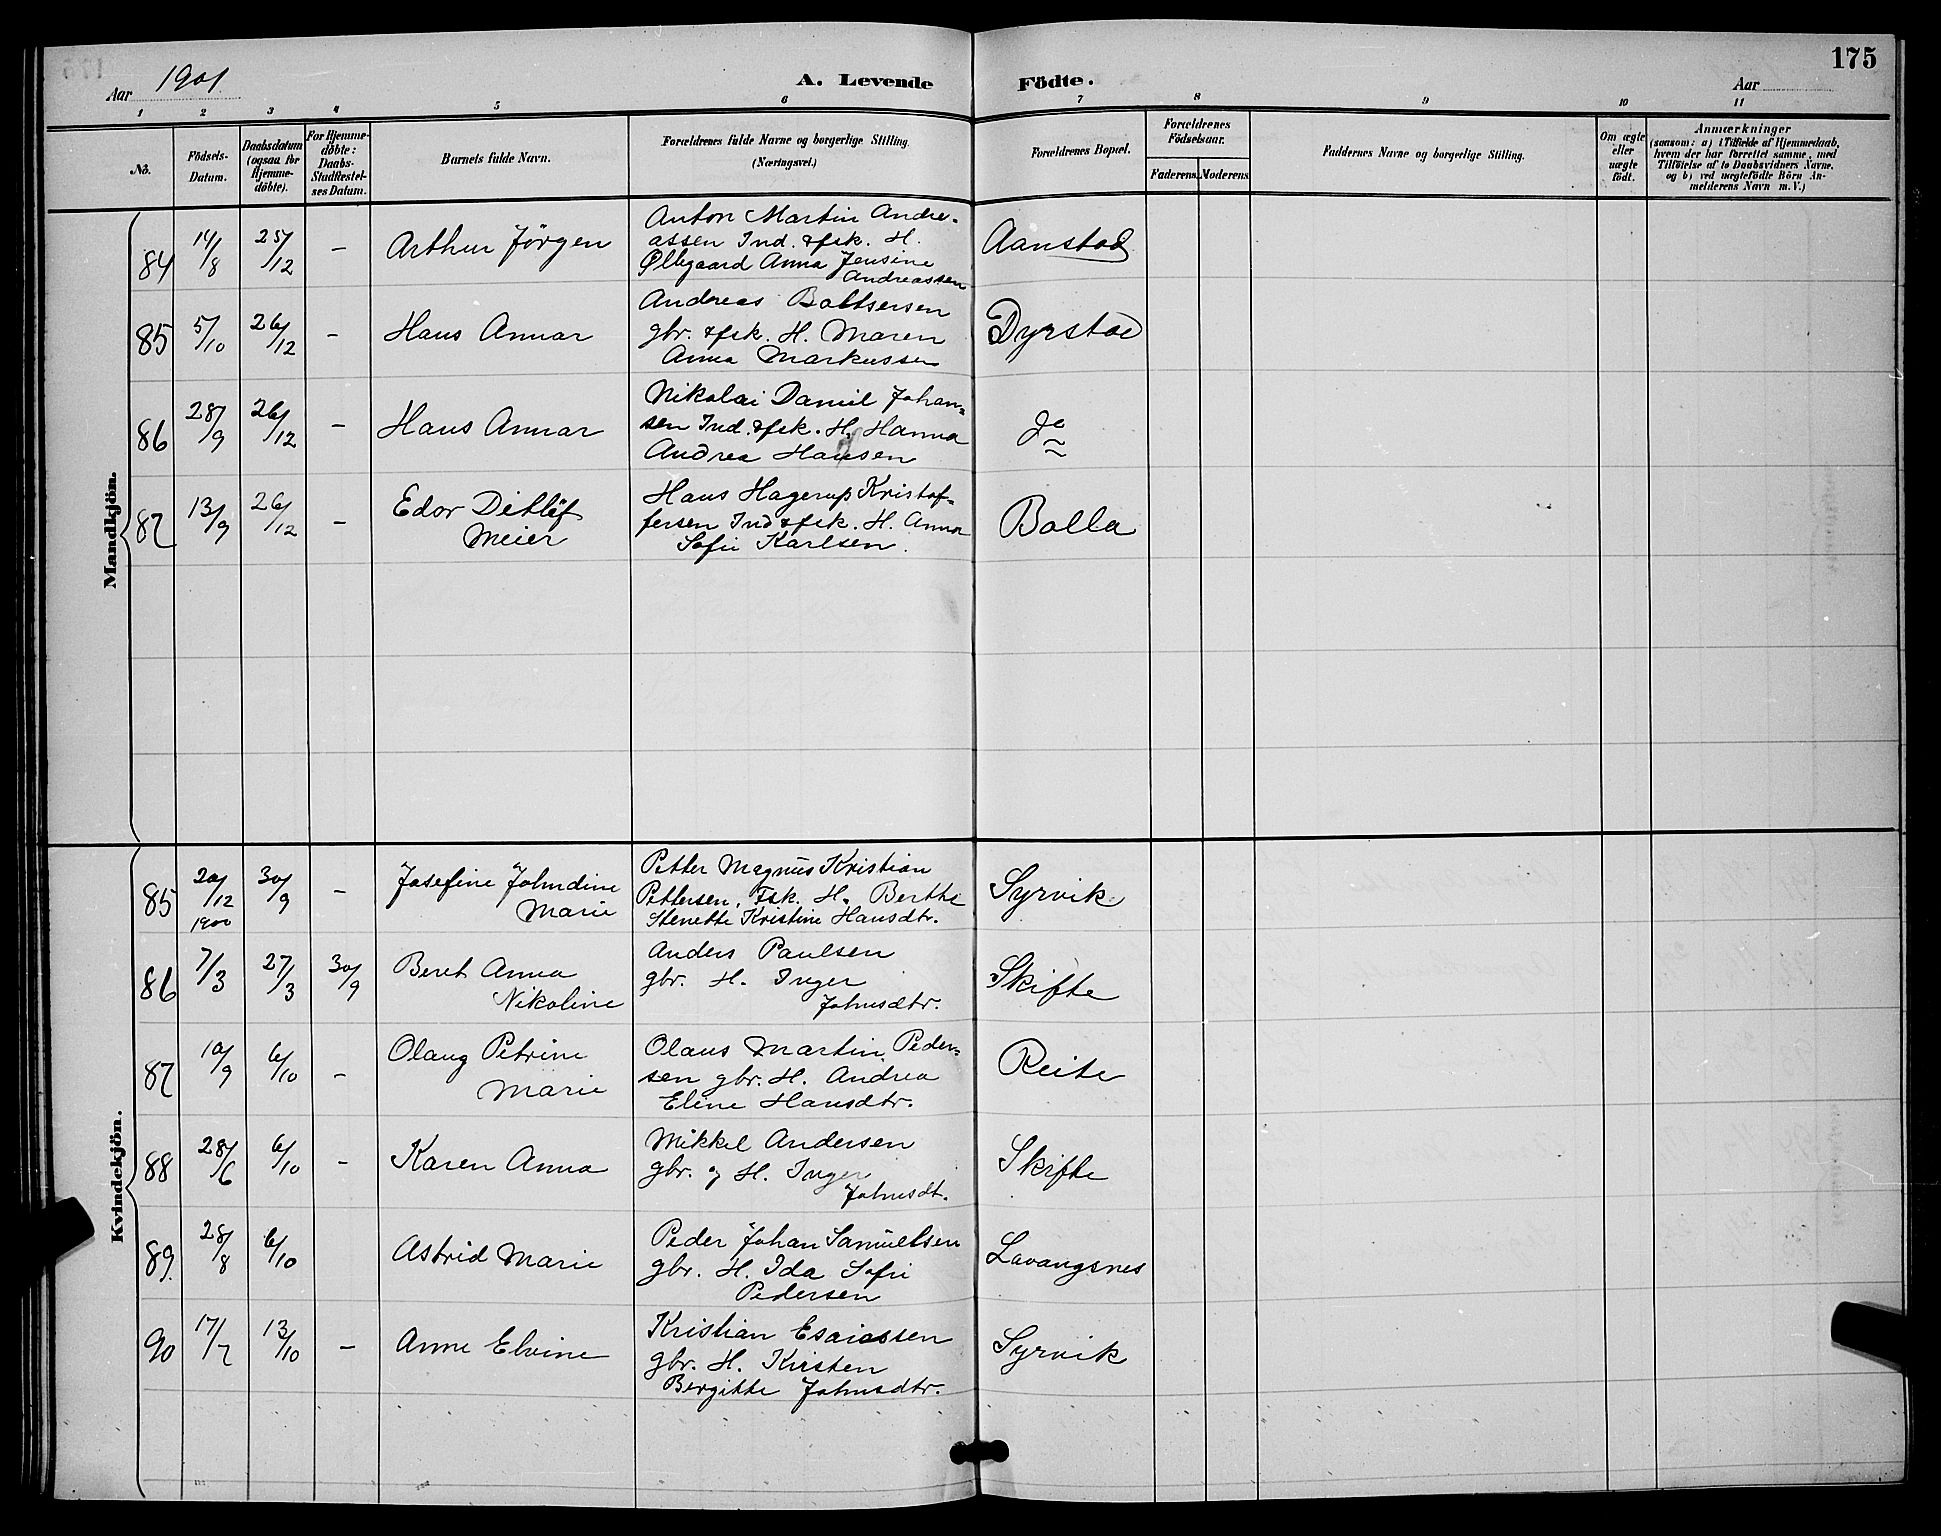 175
Aar 1901
A. Levende Födte.
Aar
1 2 3 4 5 6 7 8 9 10 11
No.
Födsels-Datum.
Daabsdatum (ogsaa for Hjemmedöbte).
For Hjemmedöbte: Daabs-Stadfæstelses Datum.
Barnets fulde Navn.
Forældrenes fulde Navne og borgerlige Stilling.
(Næringsvei.)
Forældrenes Bopæl.
Forældrenes Födselsaar.
Faderens. Moderens.
Faddernes Navne og borgerlige Stilling.
Om ægte eller uægte födt.
Anmærkninger
(saasom: a) i Tilfælde af Hjemmedaab,
hvem der har forrettet samme, med
Tilföielse af to Daabsvidners Navne,
og b) ved uægtefödte Börn An-
melderens Navn m.V.)
Mandkjön.
84 14/8 25/12 – Arthur Jörgen
Anton Martin Andre-
assen Ind. & fsk. H.
Øllegaard Anna Jensine
Andreassen
Aanstad
85 5/10 26/12 – Hans Annar
Andreas Baltsersen
gbr. & fsk. H. Maren
Anna Markussen
Dyrstad
86 28/9 26/12 – Hans Annar
Nikolai Daniel Johan-
sen Ind. & fsk. H. Hanna
Andrea Hansen
do
87 13/9 26/12 – Edor Ditlef
Meier
Hans Hagerup Kristof-
fersen Ind & fsk. H. Anna
Sofie Karlsen.
Bolla
Kvindekjön.
85 20/12 1900 30/9 – Josefine Johndine
Marie
Petter Magnus Kristian
Pettersen, Fsk. H. Berthe
Stenette Kristine Hansdtr.
Syrvik
86 7/3 27/3 30/9 Beret Anna
Nikoline
Anders Paulsen
gbr. H. Inger
Johnsdtr.
Skifte
87 10/9 6/10 – Olaug Petrine
Marie
Olaus Martin Peder-
sen gbr. H. Andrea
Eline Hansdtr.
Reite
88 28/6 6/10 – Karen Anna
Mikkel Andersen
gbr. og H. Inger
Johnsdt.
Skifte
89. 28/8 6/10 Astrid Marie
Peder Johan Samuelsen
gbr. H. Ida Sofie
Pedersen
Lavangsnes
90 17/7 13/10 – Anne Elvine
Kristian Esaiassen
gbr. H. Kirsten
Bergitte Johnsdtr.
Syrvik